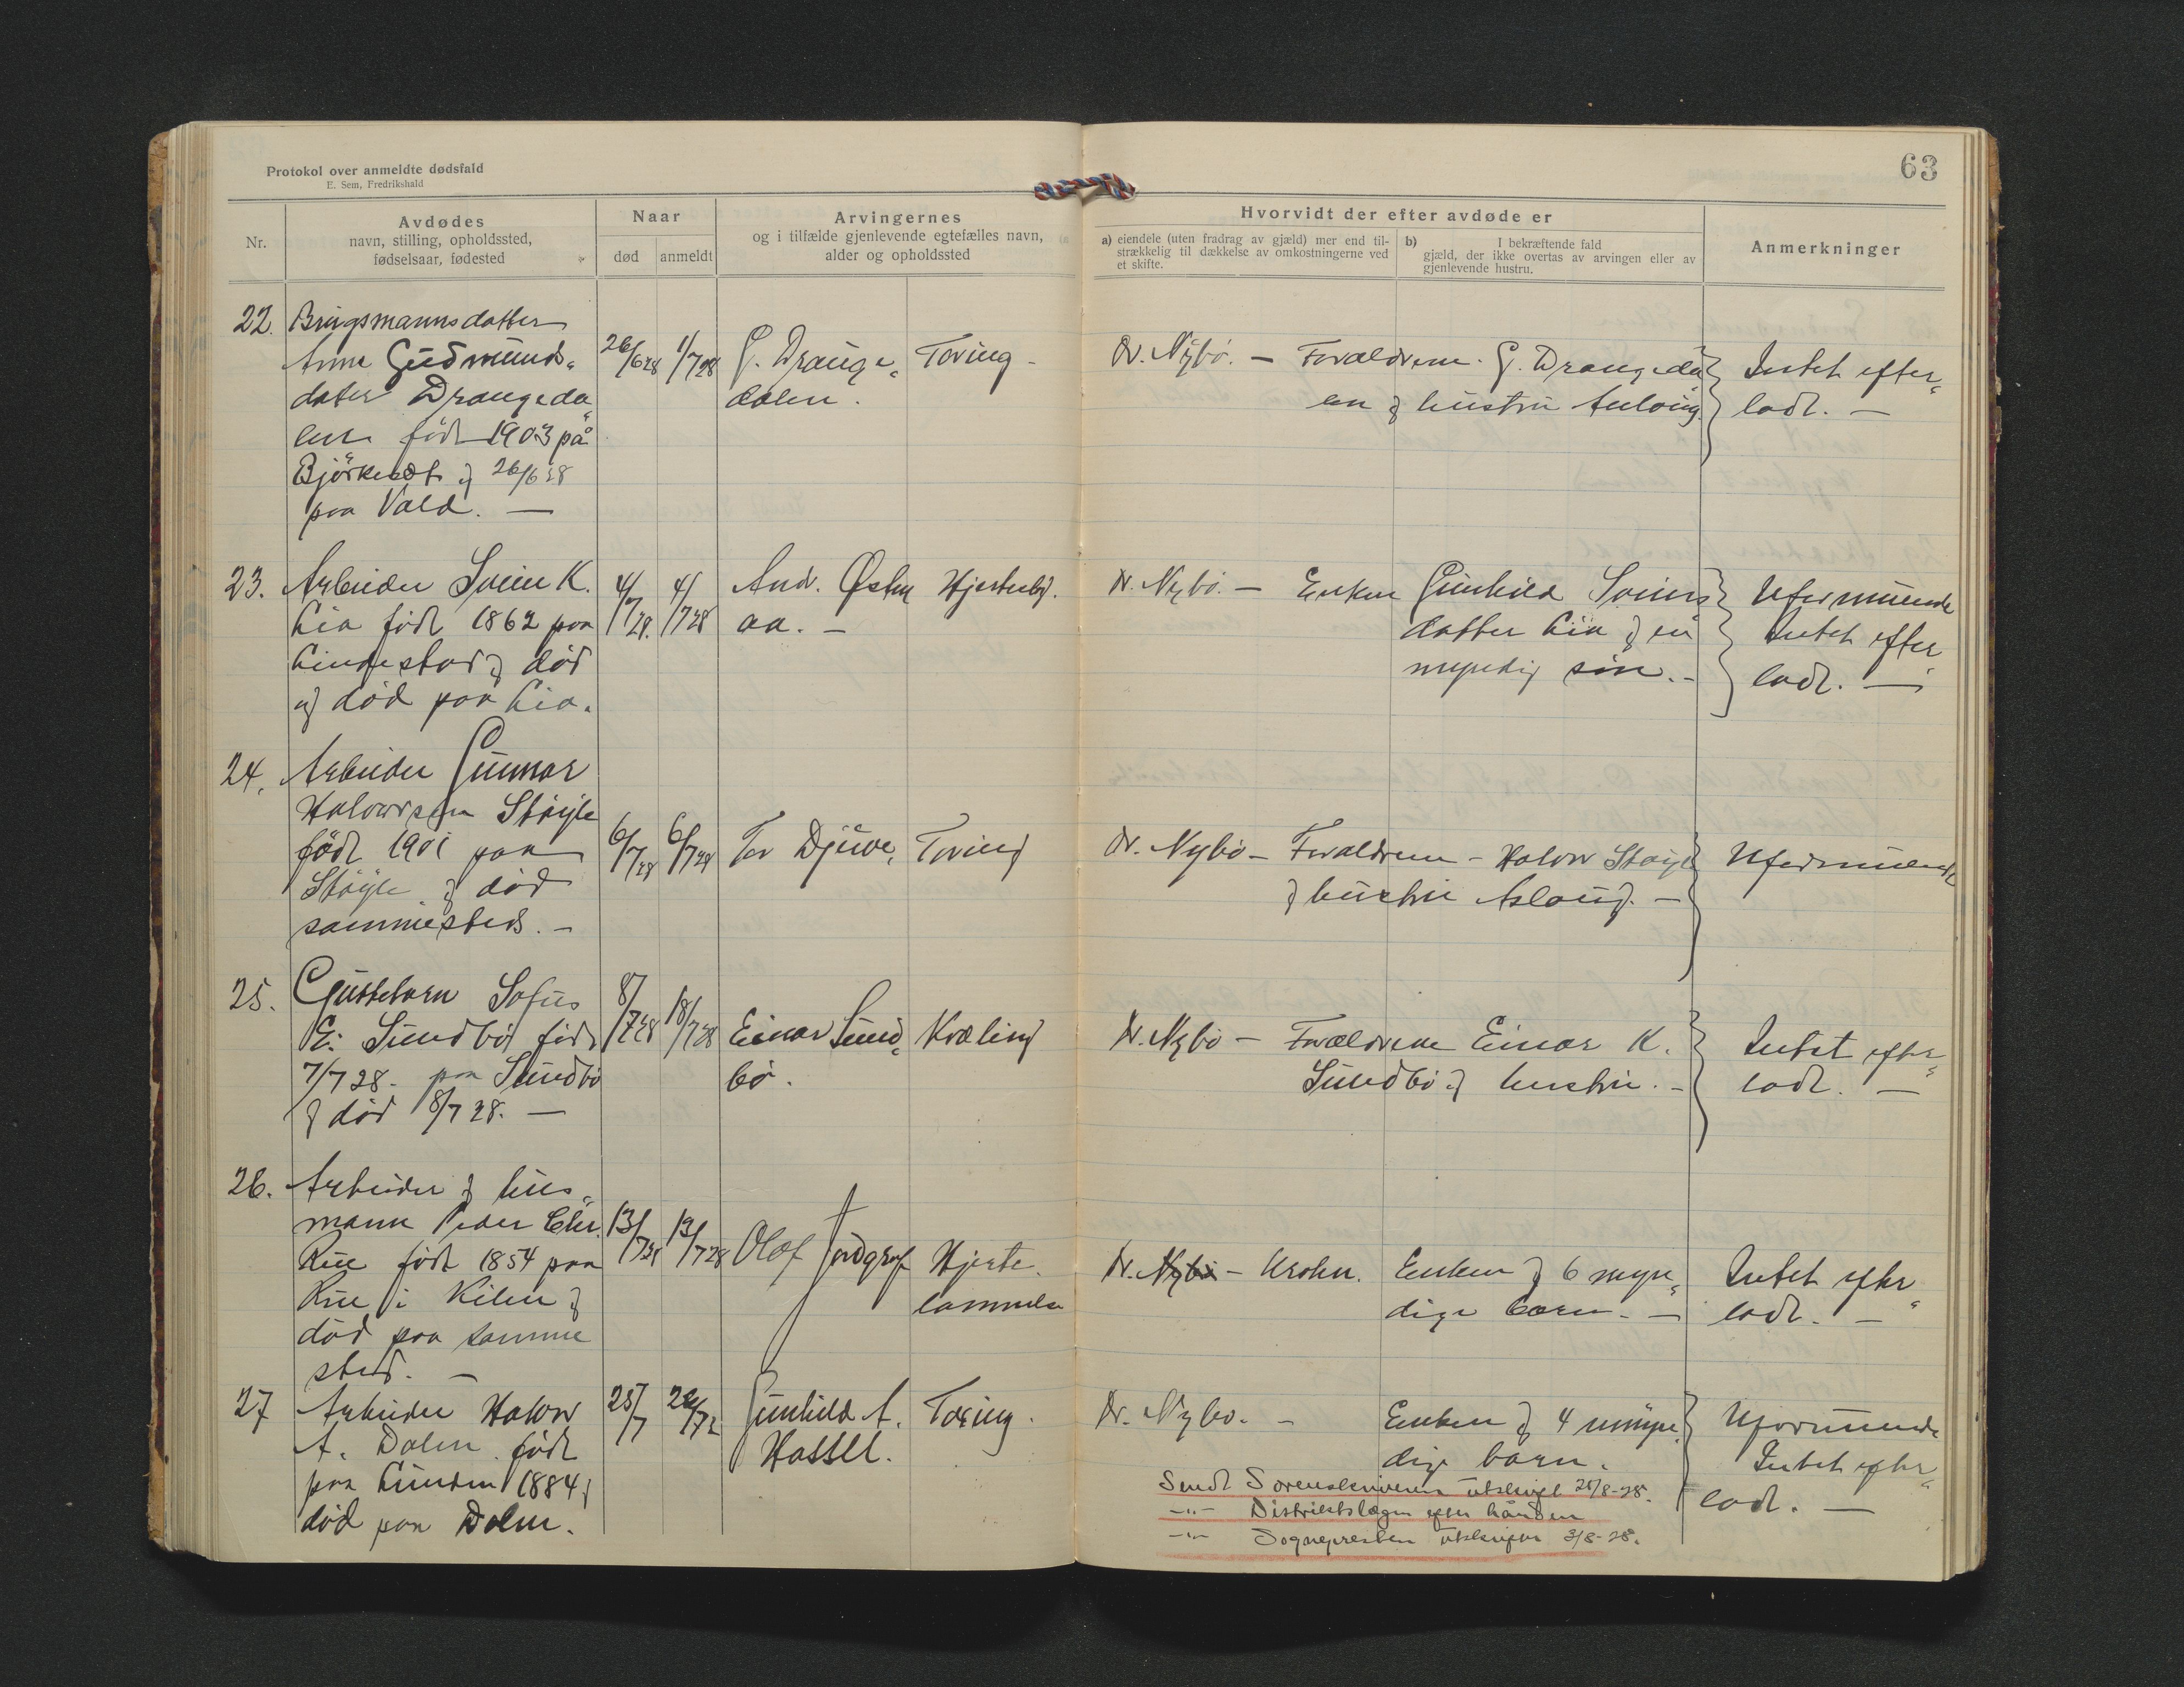 Protokol over anmeldte dødsfald
E. Sem, Fredrikshald
63
Nr.
Avdødes
navn, stilling, opholdssted,
fødselsaar, fødested
Naar
død
anmeldt
Arvingernes
og i tilfælde gjenlevende egtefælles navn,
alder og opholdssted
Hvorvidt der efter avdøde er
a) eiendele (uten fradrag av gjæld) mer end til-
strækkelig til dækkelse av omkostningerne ved
et skifte.
b) I bekræftende fald
gjæld, der ikke overtas av arvingen eller av
gjenlevende hustru.
Anmerkninger
22. Brugsmannsdatter
Anne Gudmunds-
datter Drangeda
len født 1903 på
26/6 28
paa Vald. —
26/6 28
1/7 28
G. Drange-
dalen.
Dr. Nybø. — Forældrene G. Drangedal
en & hustru
Intet efter-
ladt. —
23. Arbeider Svein K.
Lia født 1862 paa
død
og død paa Lia.
4/7 28.
4/7 28
And. Østen
aa. —
Dr. Nybø. — Enken Gunhild Sveins
datter Lia & en
myndig søn. -
Uformuende
Intet efter
ladt. —
24. Arbeider Gunnar
Halvorsen Støyle
født 1901 paa
Støyle & død
sammesteds. -
6/7 28
6/7 28
Tor Djuve,
Dr. Nybø - Forældrene - Halvor Støyl
& hustru Aslaug. —
Uformuende
25. Gutteborn Sofus
E. Sundbø født
7/7 28. paa Sundbø
& død 8/7 28. —
8/7 28
18/7 28
Einar Sund-
bø.
Dr. Nybø - Forældrene Einar K.
Sundbø & hustru. -
Intet efter-
ladt. —
26. Arbeider & hus-
mann Peder Chr.
Rue født 1854 paa
Rue i Kilen &
død paa samme
sted. —
13/7 28
19/7 28
Olaf Jordgrav
Dr. Nybø - Krohn.
Enken & 6 myn-
dige barn. —
Intet efter-
ladt. —
27 Arbeider Halvor
A. Dalen født
paa Lunden 1884 &
død paa Dalen.
25/7
Gunhild A.
Dr. Nybø. -
Enken & 4 umyn
dige barn.
Uformuende
Intet efter-
ladt. —
Sendt Sorenskriveren utskrift 28.
-"- Distriktslægen efter hånden
-"- Sognepresten utskrift 3/8-28.